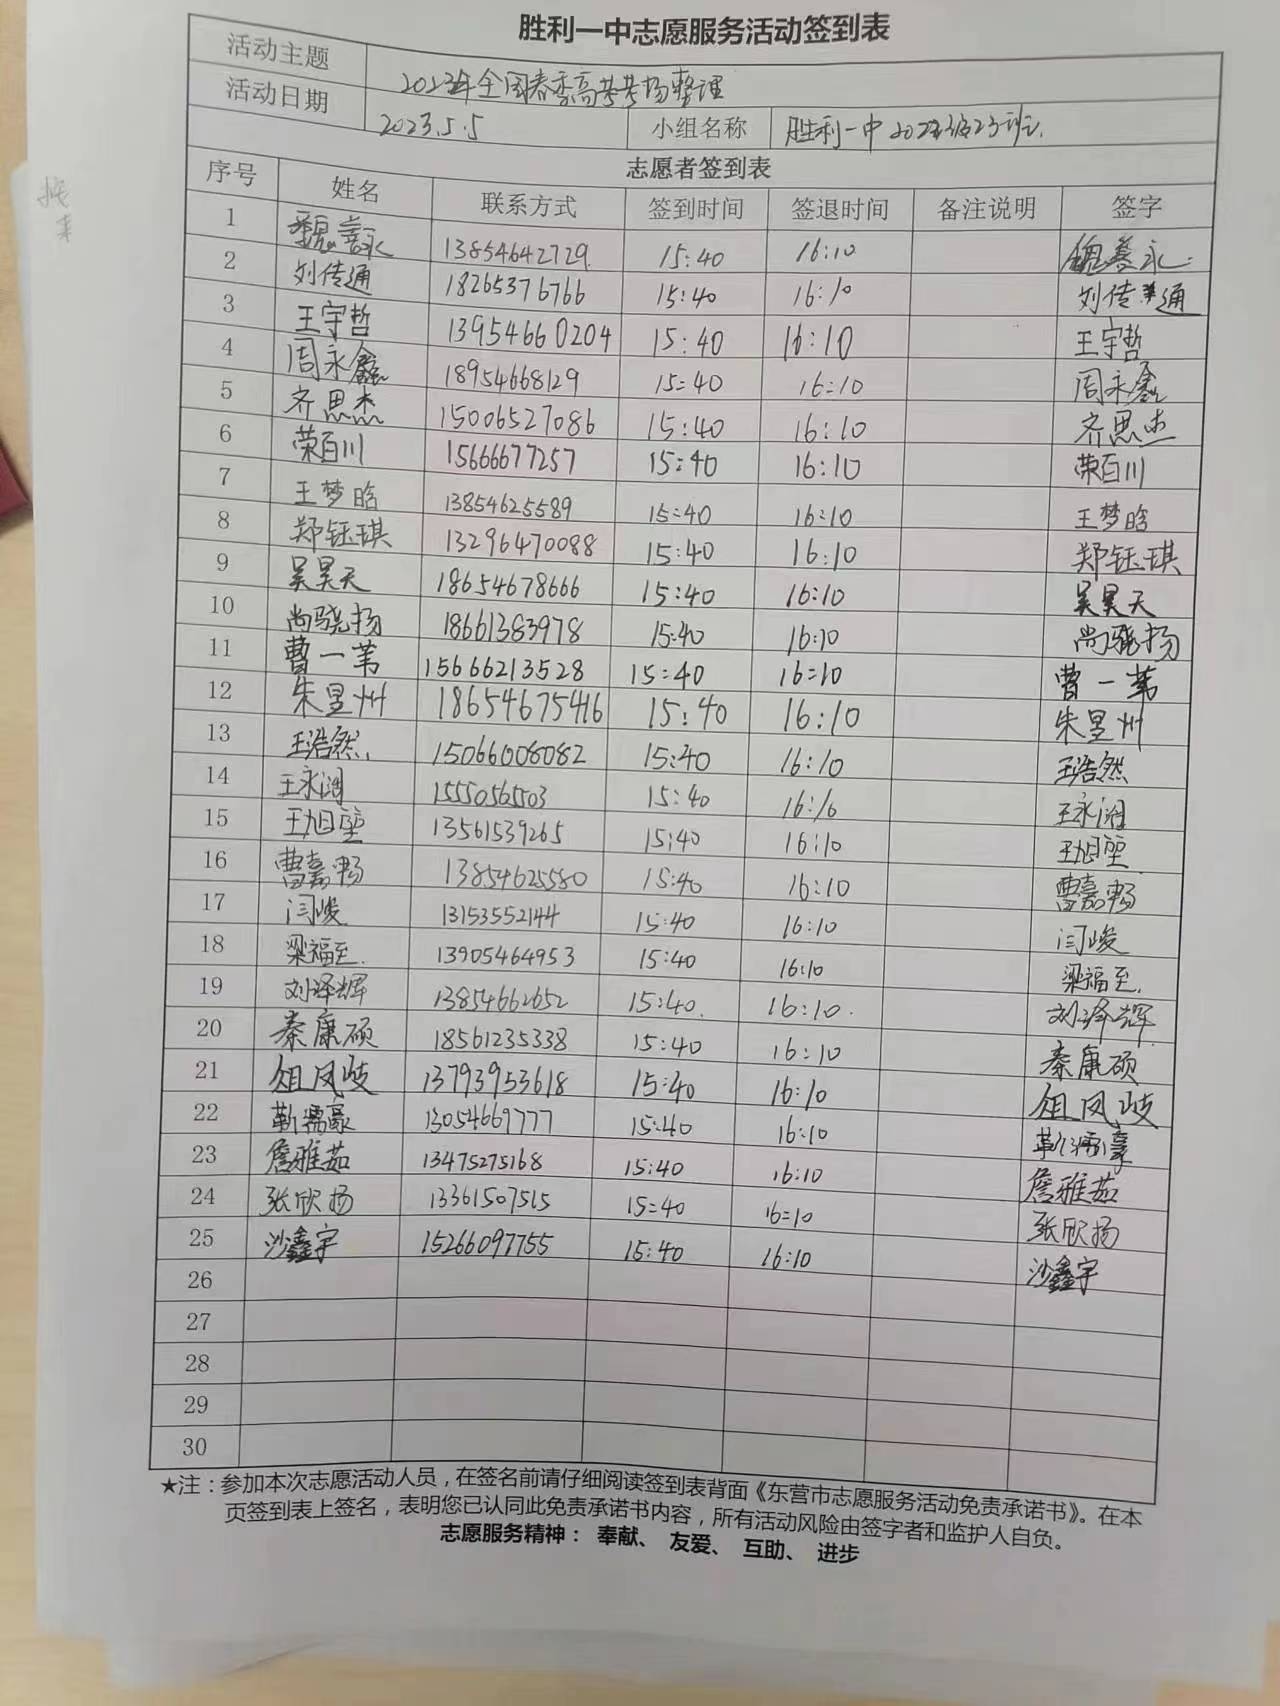 胜利一中志愿服务活动签到表
活动主题 2023年全国春季高考考场整理
活动日期 2023.5.5 小组名称 胜利一中2022级23班.
志愿者签到表
序号 姓名 联系方式 签到时间 签退时间 备注说明 签字
1 魏善永 13854642729. 15:40 16:10 魏善永.
2 刘传通 18265376766 15:40 16:10 刘传通
3 王宇哲 13954660204 15:40 16:10 王宇哲
4 周永鑫 18954668129 15:40 16:10 周永鑫
5 齐思杰 15006527086 15:40 16:10 齐思杰
6 荣百川 15666677257 15:40 16:10 荣百川
7 王梦晗 13854625589 15:40 16:10 王梦晗
8 郑钰琪 13296470088 15:40 16:10 郑钰琪
9 吴昊天 18654678666 15:40 16:10 吴昊天
10 尚骁扬 18661383978 15:40 16:10 尚骁扬
11 曹一苇 15666213528 15:40 16:10 曹一苇
12 朱星州 18654675416 15:40 16:10 朱星州
13 王浩然. 15066008082 15:40 16:10 王浩然
14 王永润 15550565503 15:40 16:10 王永润
15 王旭堃 13561539265 15:40 16:10 王旭堃
16 曹嘉畅 13854625580 15:40 16:10 曹嘉畅
17 闫峻 13153552144 15:40 16:10 闫峻
18 梁福至. 13905464953 15:40 16:10 梁福至.
19 刘泽辉 13854662652 15:40. 16:10. 刘泽辉
20 秦康硕 18561235338 15:40 16:10 秦康硕
21 俎凤岐 13793953618 15:40 16:10 俎凤岐
22 靳濡豪 13054669777 15:40 16:10 靳濡豪
23 詹雅茹 13475275168 15:40 16:10 詹雅茹
24 张欣扬 13361507515 15:40 16:10 张欣扬
25 沙鑫宇 15266097755 15:40 16:10 沙鑫宇
26
27
28
29
30
★注：参加本次志愿活动人员，在签名前请仔细阅读签到表背面《东营市志愿服务活动免责承诺书》。在本
页签到表上签名，表明您已认同此免责承诺书内容，所有活动风险由签字者和监护人自负。
志愿服务精神： 奉献、 友爱、 互助、 进步